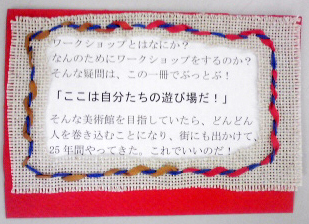 ワークショップとはなにか？
なんのためにワークショップをするのか？
そんな疑問は、この一冊でぶっとぶ！
「ここは自分たちの遊び場だ！」
そんな美術館を目指していたら、どんどん
人を巻き込むことになり、街にも出かけて、
25年間やってきた。これでいいのだ！